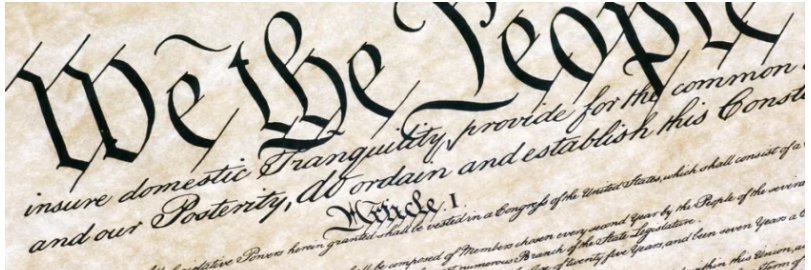 We the People
insure domestic Tranquility, provide for the common
and our Posterity, do ordain and establish this Const
Article I.
Legislative Powers herein granted shall be vested in a Congress of the United States, which shall consist of a
shall be composed of Members chosen every second Year by the People of the several
numerous Branch of the State Legislature.
of twenty five Years, and been seven Years a
within this Union,